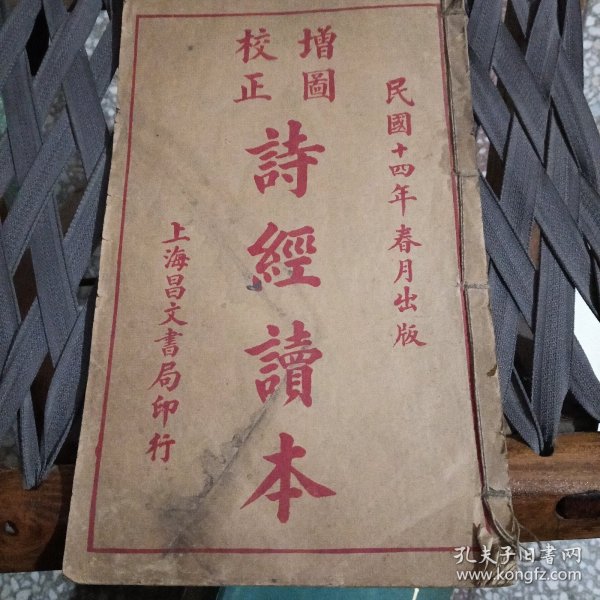 民國十四年春月出版
增圖
校正
詩經讀本
上海昌文書局印行
孔夫子旧书网
www.kongfz.com